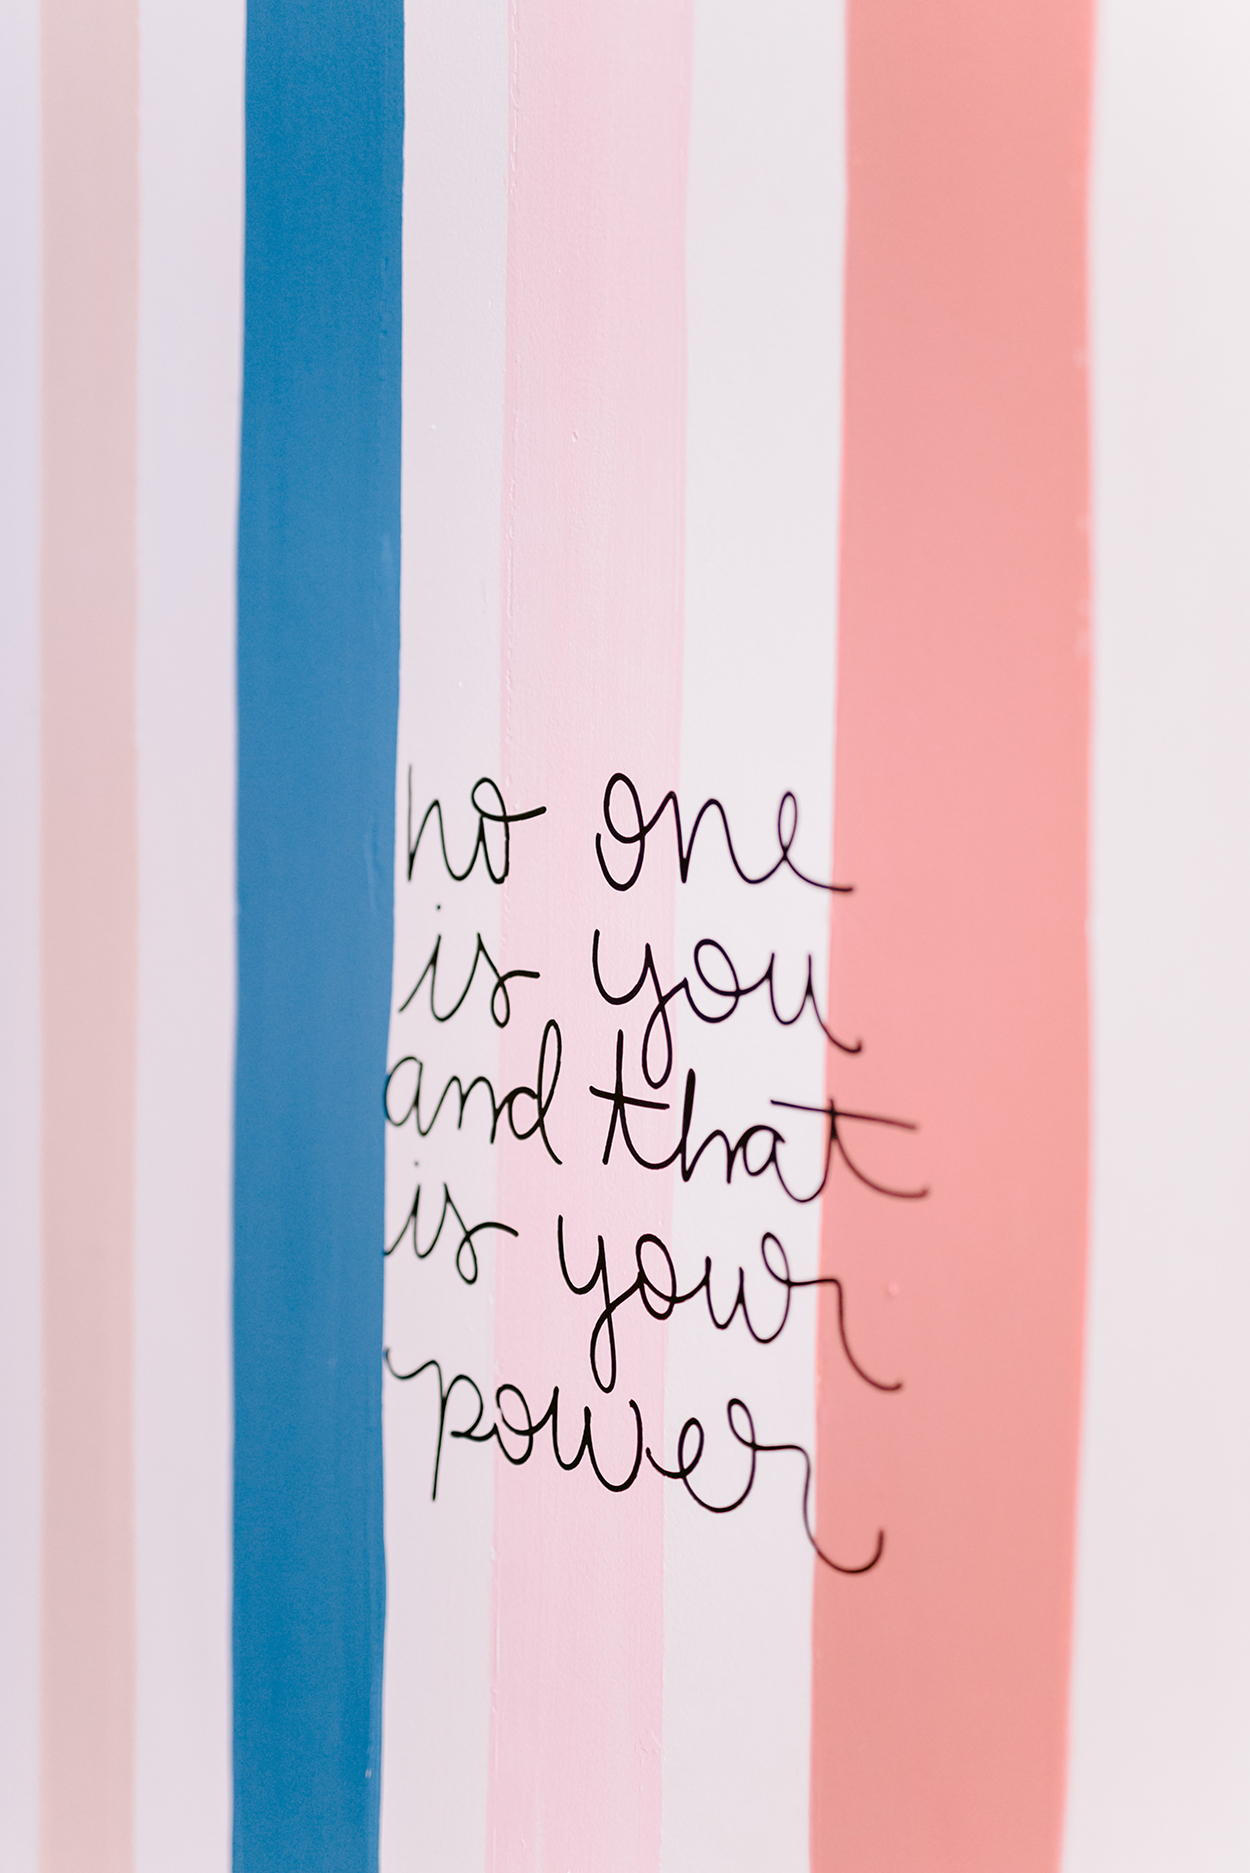 no one
is you
and that
is your
power